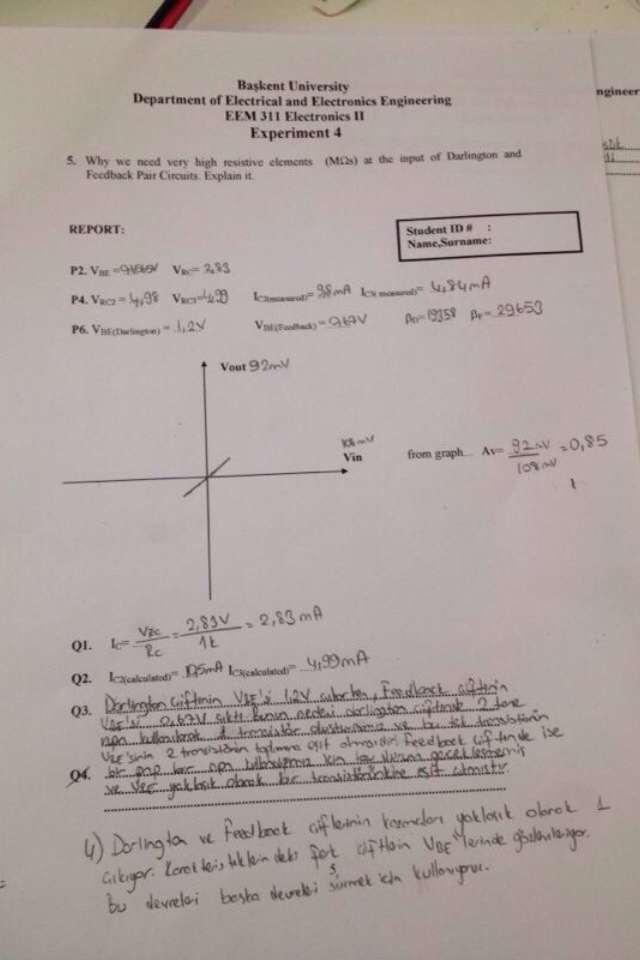 Başkent University
Department of Electrical and Electronics Engineering
EEM 311 Electronics II
Experiment 4
ngineer
5. Why we need very high resistive elements (MΩs) at the input of Darlington and
Feedback Pair Circuits. Explain it.
REPORT:
Student ID # :
Name,Surname:
P2. VBE = VRC= 2,83
P4. VRC2 = 4,98 VRC3=4,99 IC2(measured)= 9,8mA IC3( measured)= 4,84mA
P6. VBE(Darlington) = 1,2V VBE(Feedback) = 0,67V βD= 19358 βF= 29653
Vout 92mV
108 mV
Vin
from graph... Av= 92mV / 108mV = 0,85
Q1. IC= VRC / RC = 2,83V / 1k = 2,83 mA
Q2. IC2(calculated)= 10,5mA IC3(calculated)= 4,99mA
Q3. Darlington çiftinin VBE'si 1,2V çıkarken, Feedback çiftinin
VBE'si 0,67V çıktı. Bunun nedeni darlington çiftinde 2 tane
npn kullanılarak 1 transistör oluşturmamız ve bu tek transistörün
VBE'sinin 2 transistörün toplamına eşit olmasıdır. Feedback çiftinde ise
Q4. bir pnp bir npn kullandığımız için
ve VBE yaklaşık olarak bir transistörünkine eşit çıkmıştır.
4) Darlington ve Feedback çiftlerinin kazançları yaklaşık olarak 1
çıkıyor. Karakteristiklerindeki fark çiftlerin VBE'lerinde gözleniyor.
Bu devreleri başka devreleri sürmek için kullanıyoruz.